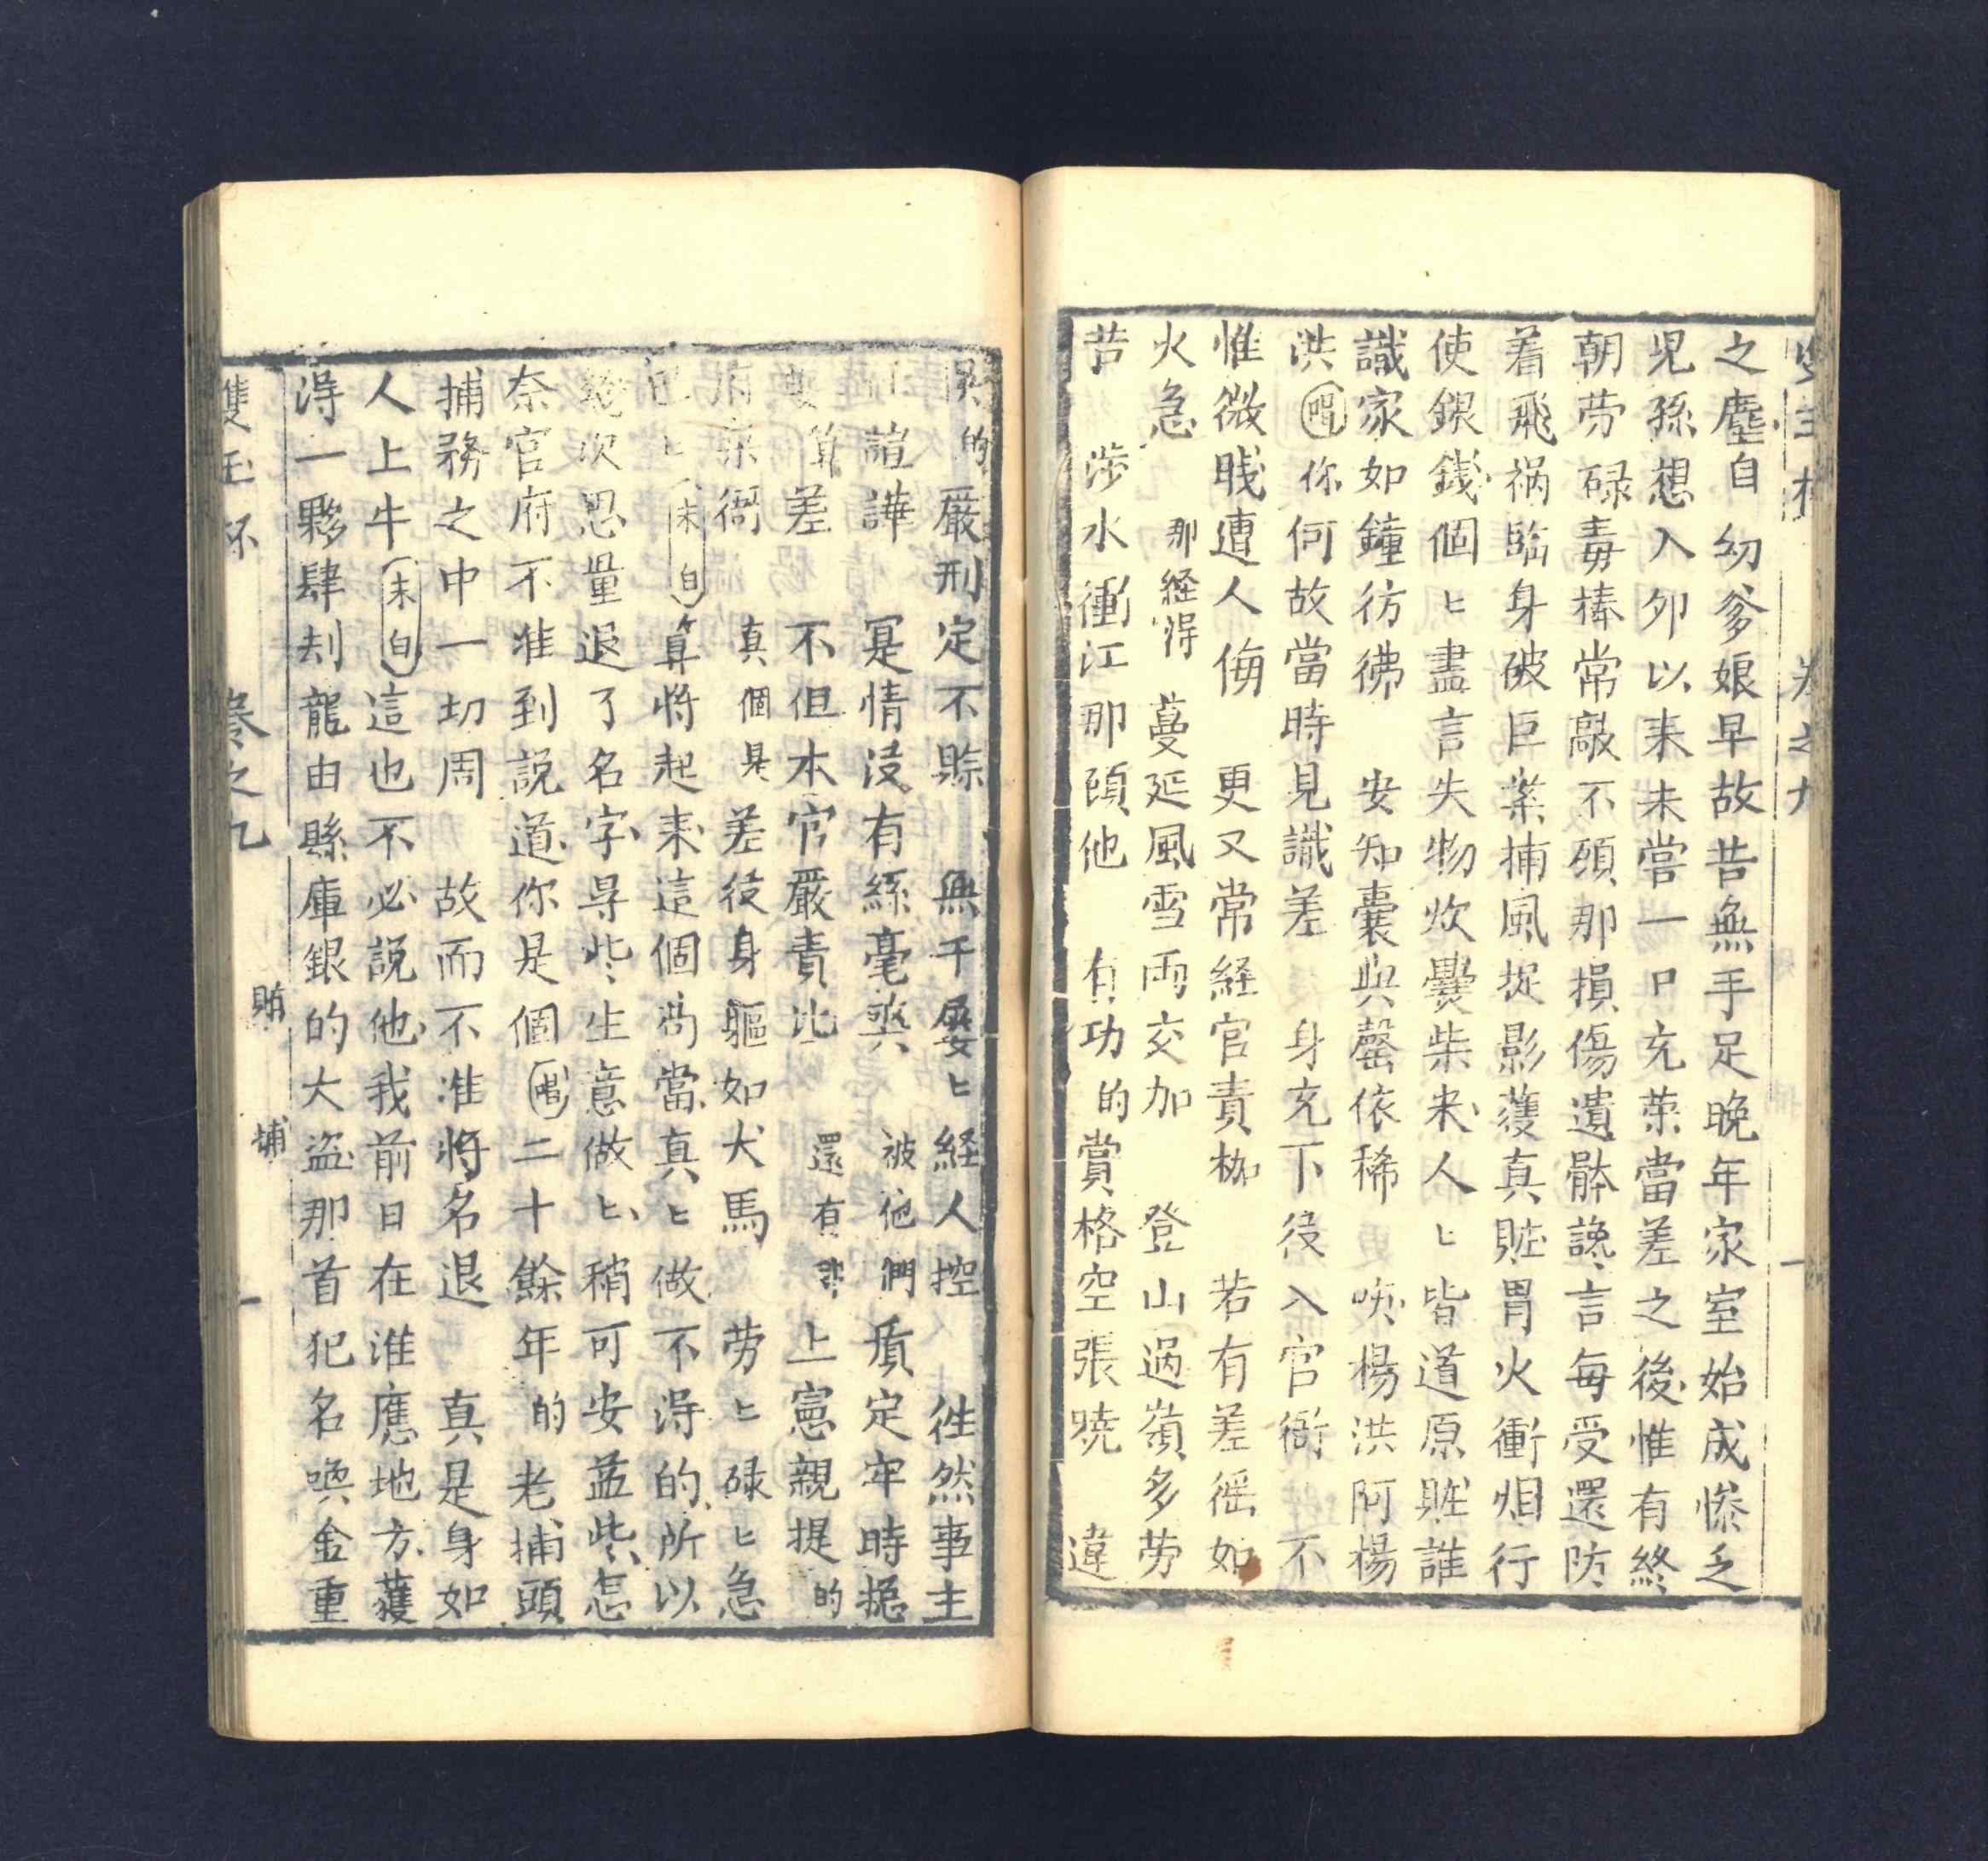 之塵自幼爹娘早故苦無手足晚年家室始成慘乏
児孫想入夘以来未嘗一口充荣當差之後惟有終
朝劳碌毒棒常敲不頋那損傷遺骵讒言每受還防
着飛禍臨身破巨業捕風捉影獲真賍胃火衝烟行
使銀錢個匕盡言失物炊爨柴米人匕皆道原賍誰
識家如鐘彷彿 安知囊與罄依稀 咦楊洪阿楊
洪 唱 你何故當時見識差 身充下役入官衙 不
惟微賤遭人侮 更又常経官責枷 若有差徭如
火急 那経得 蔓延風雪雨交加 登山過嶺多劳
苦 涉水衝江那頋他 有功的賞格空張晓 違
的 嚴刑定不賒 無干屡匕経人控 徃然事主
諠譁 冤情没有絲毫爽 被他們 質定牢時
算差 不但本官嚴責比 還有 上憲親提的
衙 真個是 差役身軀如犬馬 劳匕碌匕急
匕 末白 算將起来這個 當真匕做不得的所以
幾次思量退了名字尋些生意做匕稍可安益些怎
奈官府不准到說道你是個 唱 二十餘年的老捕頭
捕務之中一切周 故而不准將名退 真是身如
人上牛 末白 這也不必說他我前日在淮應地方獲
得一夥肆刦龍由縣庫銀的大盗那首犯名喚金重
雙玉杯 卷之九 賄捕 一